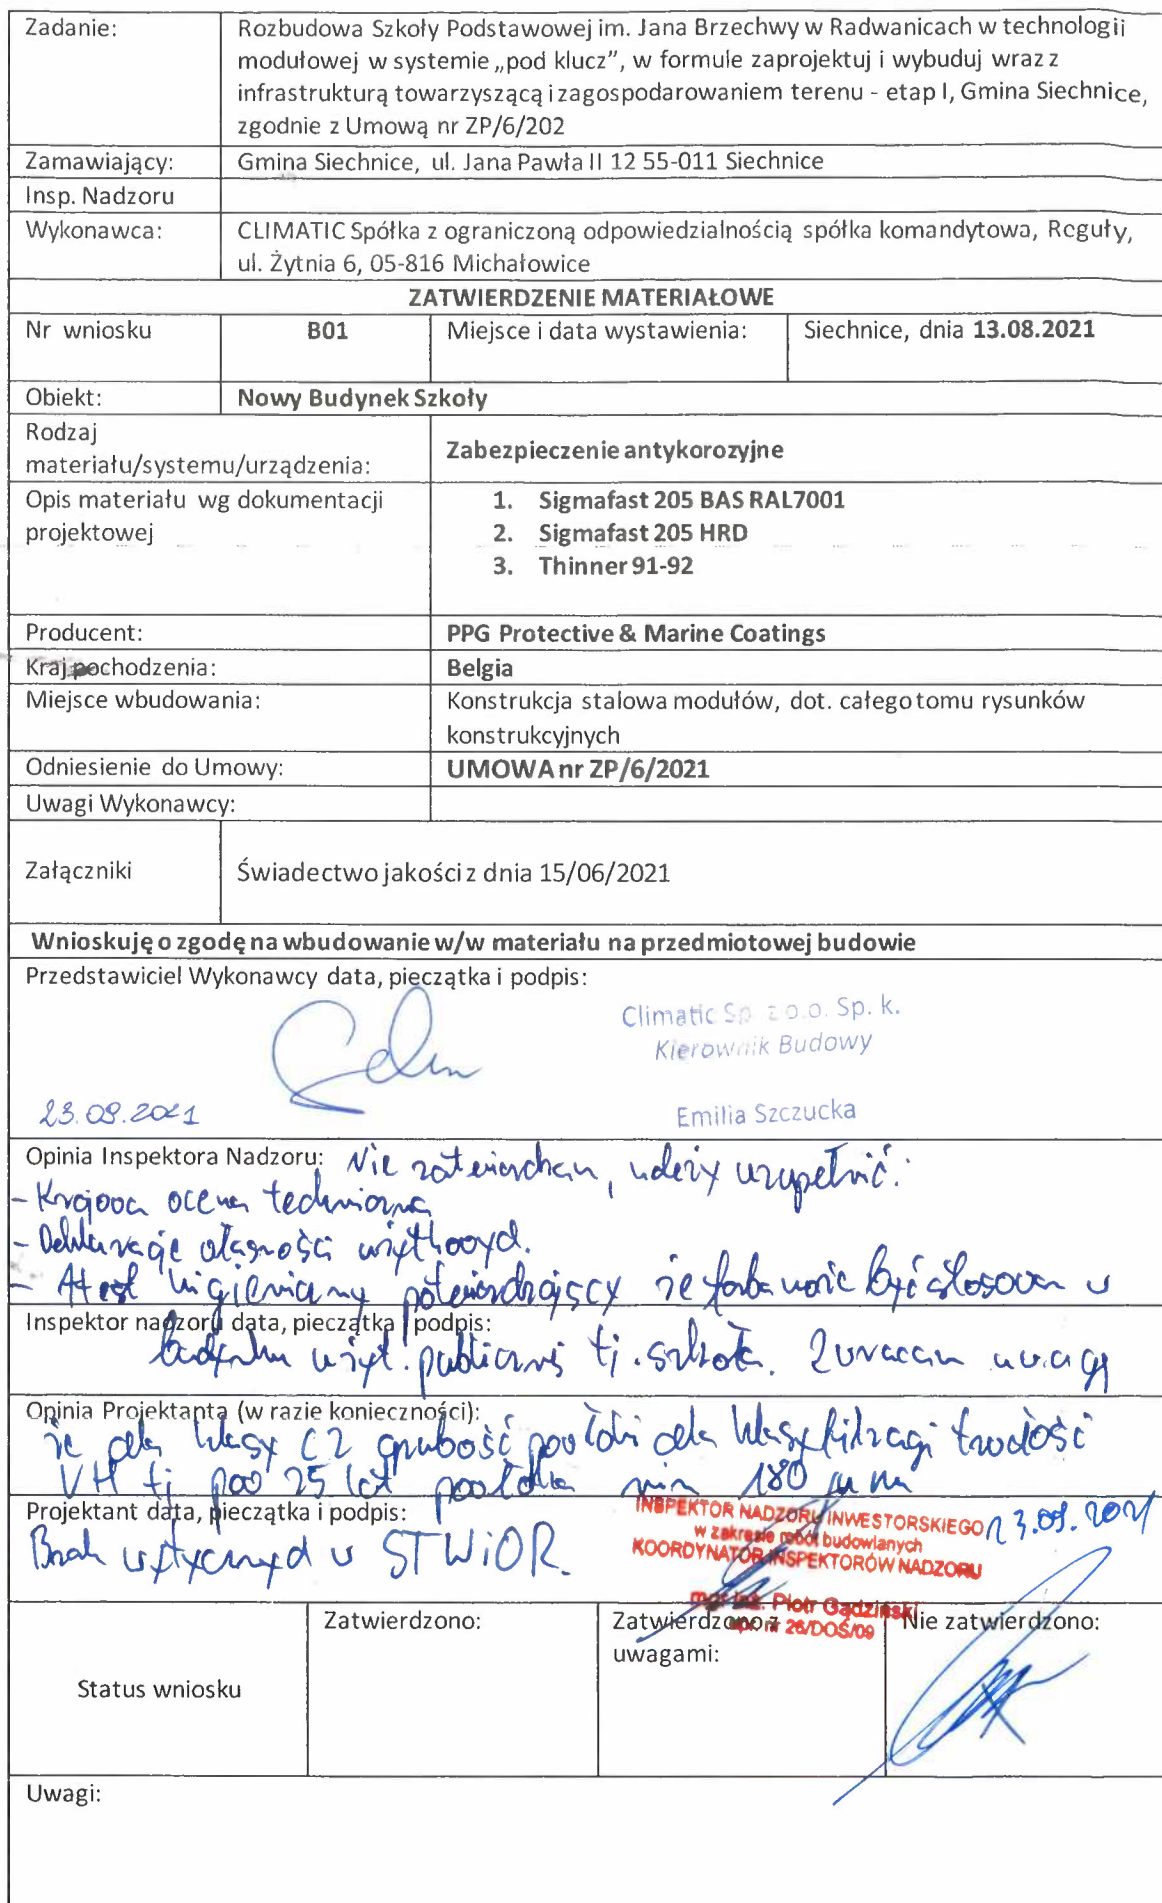 Zadanie: Rozbudowa Szkoły Podstawowej im. Jana Brzechwy w Radwanicach w technologii
modułowej w systemie „pod klucz”, w formule zaprojektuj i wybuduj wraz z
infrastrukturą towarzyszącą i zagospodarowaniem terenu - etap I, Gmina Siechnice,
zgodnie z Umową nr ZP/6/202
Zamawiający: Gmina Siechnice, ul. Jana Pawła II 12 55-011 Siechnice
Insp. Nadzoru
Wykonawca: CLIMATIC Spółka z ograniczoną odpowiedzialnością spółka komandytowa, Reguły,
ul. Żytnia 6, 05-816 Michałowice
ZATWIERDZENIE MATERIAŁOWE
Nr wniosku B01 Miejsce i data wystawienia: Siechnice, dnia 13.08.2021
Obiekt: Nowy Budynek Szkoły
Rodzaj
materiału/systemu/urządzenia: Zabezpieczenie antykorozyjne
Opis materiału wg dokumentacji
projektowej
1. Sigmafast 205 BAS RAL7001
2. Sigmafast 205 HRD
3. Thinner 91-92
Producent: PPG Protective & Marine Coatings
Kraj pochodzenia: Belgia
Miejsce wbudowania: Konstrukcja stalowa modułów, dot. całego tomu rysunków
konstrukcyjnych
Odniesienie do Umowy: UMOWA nr ZP/6/2021
Uwagi Wykonawcy:
Załączniki Świadectwo jakości z dnia 15/06/2021
Wnioskuję o zgodę na wbudowanie w/w materiału na przedmiotowej budowie
Przedstawiciel Wykonawcy data, pieczątka i podpis:
Climatic Sp. z o.o. Sp. k.
Kierownik Budowy
Emilia Szczucka
Opinia Inspektora Nadzoru: Nie zatwierdzam, należy uzupełnić:
- Krajowa ocena techniczna
- Deklarację własności użytkowych.
- Atest higieniczny potwierdzający że farba może być stosowana w
Inspektor nadzoru data, pieczątka i podpis:
budynku użyt. publicznej tj. szkoła. Zwracam uwagę
Opinia Projektanta (w razie konieczności):
że dla klasy C2 grubość powłoki dla klasyfikacji trwałość
VH tj. pow 25 lat powłoka min 180 µm
Projektant data, pieczątka i podpis:
Brak wytycznych w STWiOR.
INSPEKTOR NADZORU INWESTORSKIEGO
w zakresie robót budowlanych
KOORDYNATOR INSPEKTORÓW NADZORU
mgr inż. Piotr Gądziński
upr. nr 26/DOŚ/09
Status wniosku Zatwierdzono: Zatwierdzono z
uwagami: Nie zatwierdzono:
Uwagi: